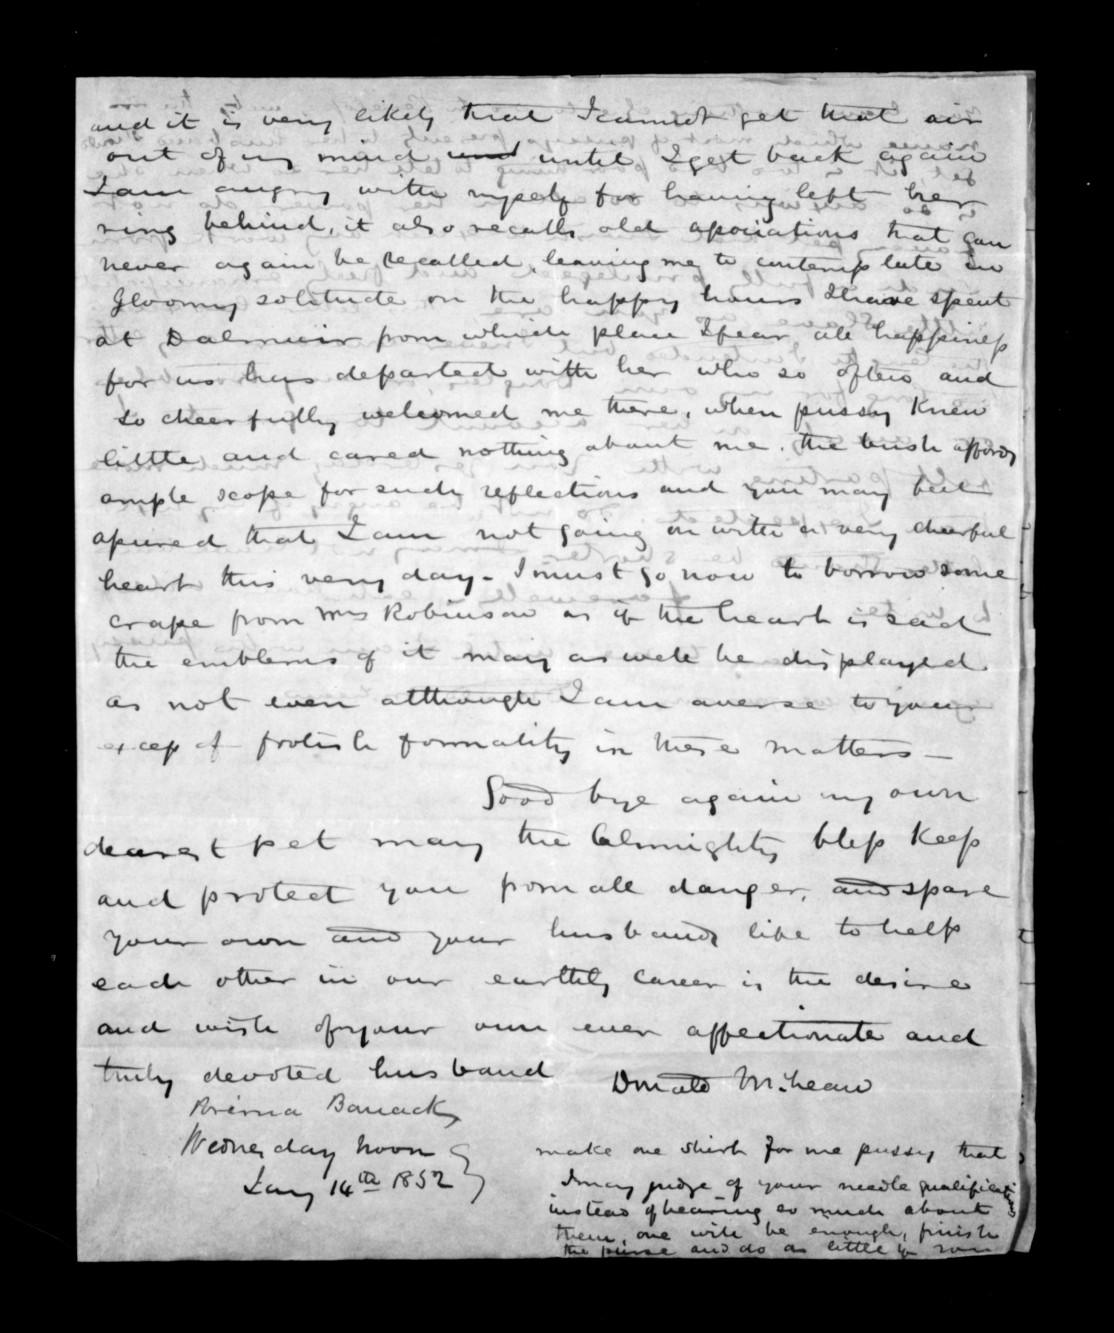 and it is very likely that I cannot get that air
out of my mind until I get back again
I am angry with myself for having left her
ring behind, it also recalls old associations that can
never again be recalled leaving me to contemplate in
gloomy solitude on the happy hours I have spent
at Dalmuir from which place I fear all happiness
for us has departed with her who so often and
so cheerfully welcomed me there, when pussy knew
little and cared nothing about me. the bush affords
ample scope for such reflections and you may feel
assured that I am not going on with a very cheerful
heart this very day - I must go now to borrow some
crape from Mrs Robinson as if the heart is sad
the emblems of it may as well be displayed
as not even although I am averse to your
excess of foolish formality in these matters —
Good bye again my own
dearest pet may the Almighty bless keep
and protect you from all danger, and spare
your own and your husbands life to help
each other in our earthly career is the desire
and wish of your own ever affectionate and
truly devoted husband Donald McLean
Wednesday noon
Jany 14th 1852
make one shirt for me pussy that
I may judge of your needle qualifications
instead of hearing so much about
them, one will be enough, finish
the purse and do as little